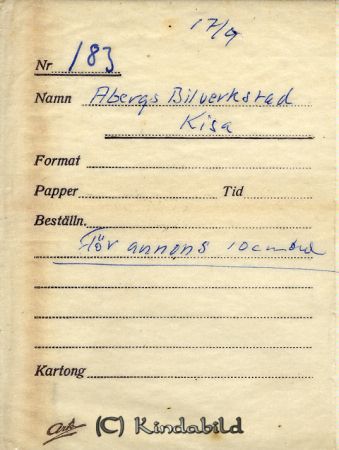 17/9
Nr 183
Namn Abergs Bilverkstad
Kisa
Format
Papper Tid
Beställn.
För annons
Kartong
(C) Kindabild